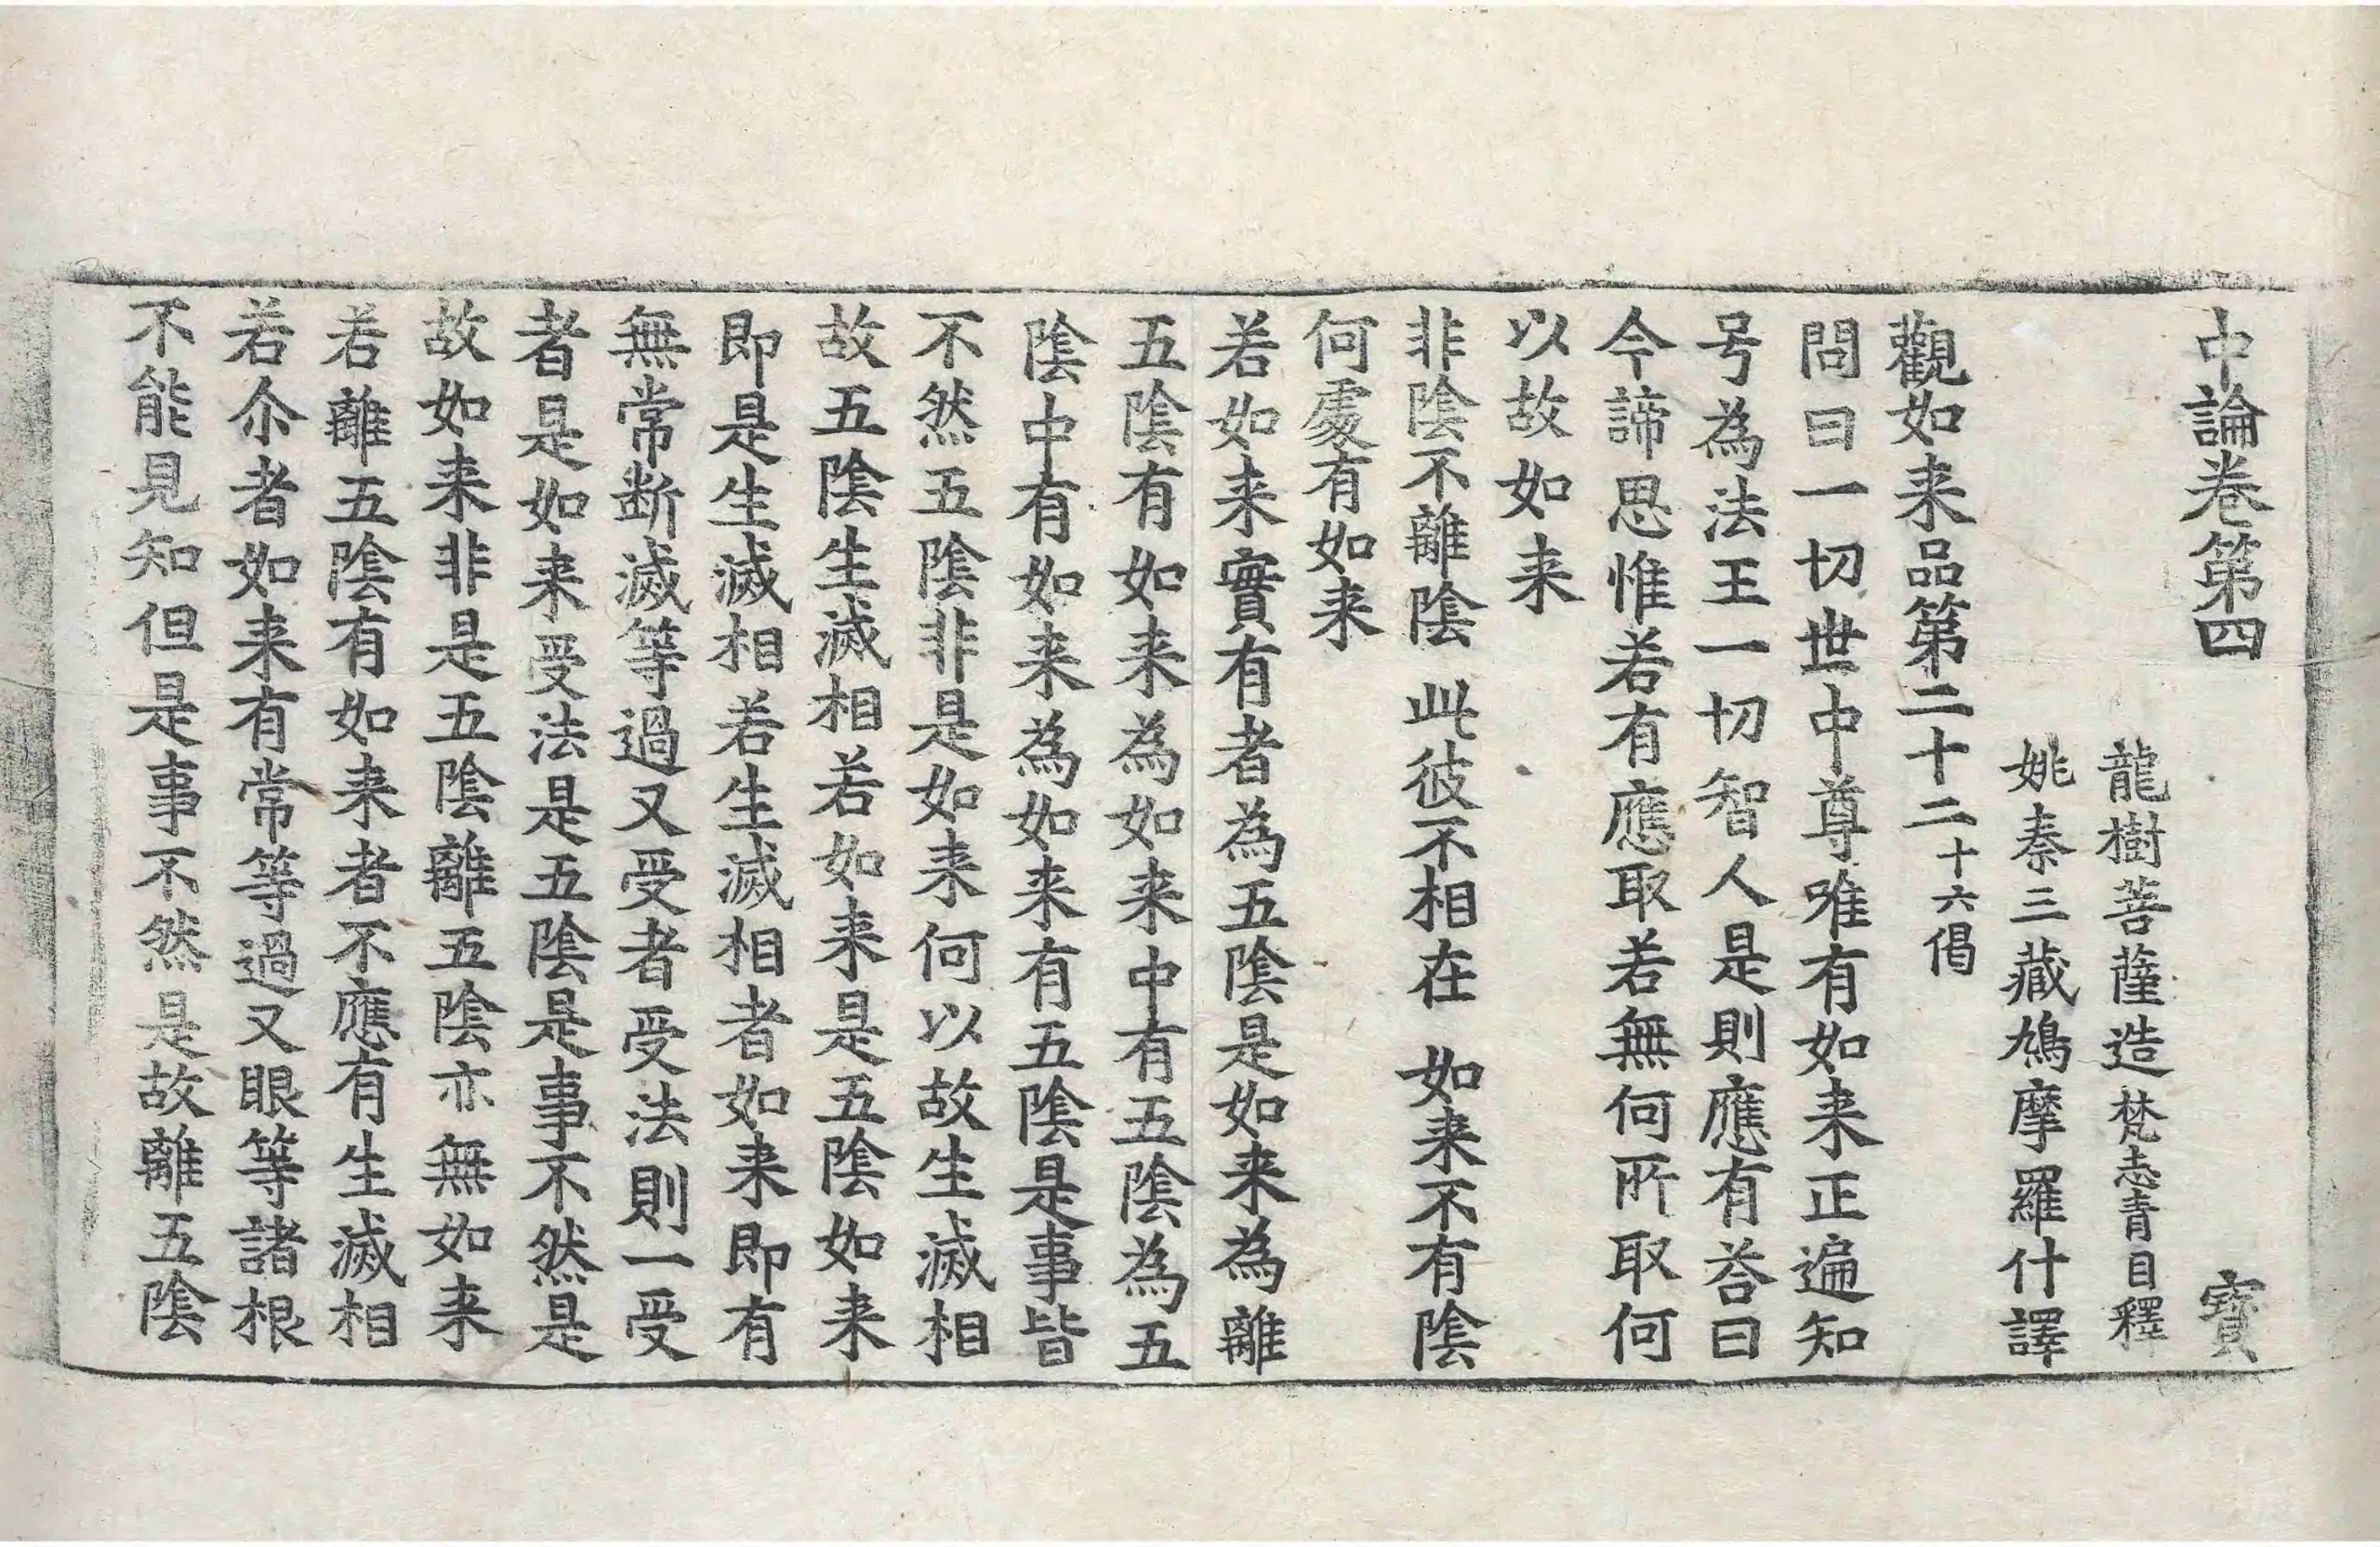 中論卷第四 寳
龍樹菩薩造梵志青目釋
姚秦三藏鳩摩羅什譯
觀如来品第二十二十六偈
問曰一切世中尊唯有如来正遍知
号為法王一切智人是則應有荅曰
今諦思惟若有應取若無何所取何
以故如来
非陰不離陰 此彼不相在 如来不有陰
何處有如来
若如来實有者為五陰是如来為離
五陰有如来為如来中有五陰為五
陰中有如来為如来有五陰是事皆
不然五陰非是如来何以故生滅相
故五陰生滅相若如来是五陰如来
即是生滅相若生滅相者如来即有
無常断滅等過又受者受法則一受
者是如来受法是五陰是事不然是
故如来非是五陰離五陰亦無如来
若離五陰有如来者不應有生滅相
若尒者如来有常等過又眼等諸根
不能見知但是事不然是故離五陰